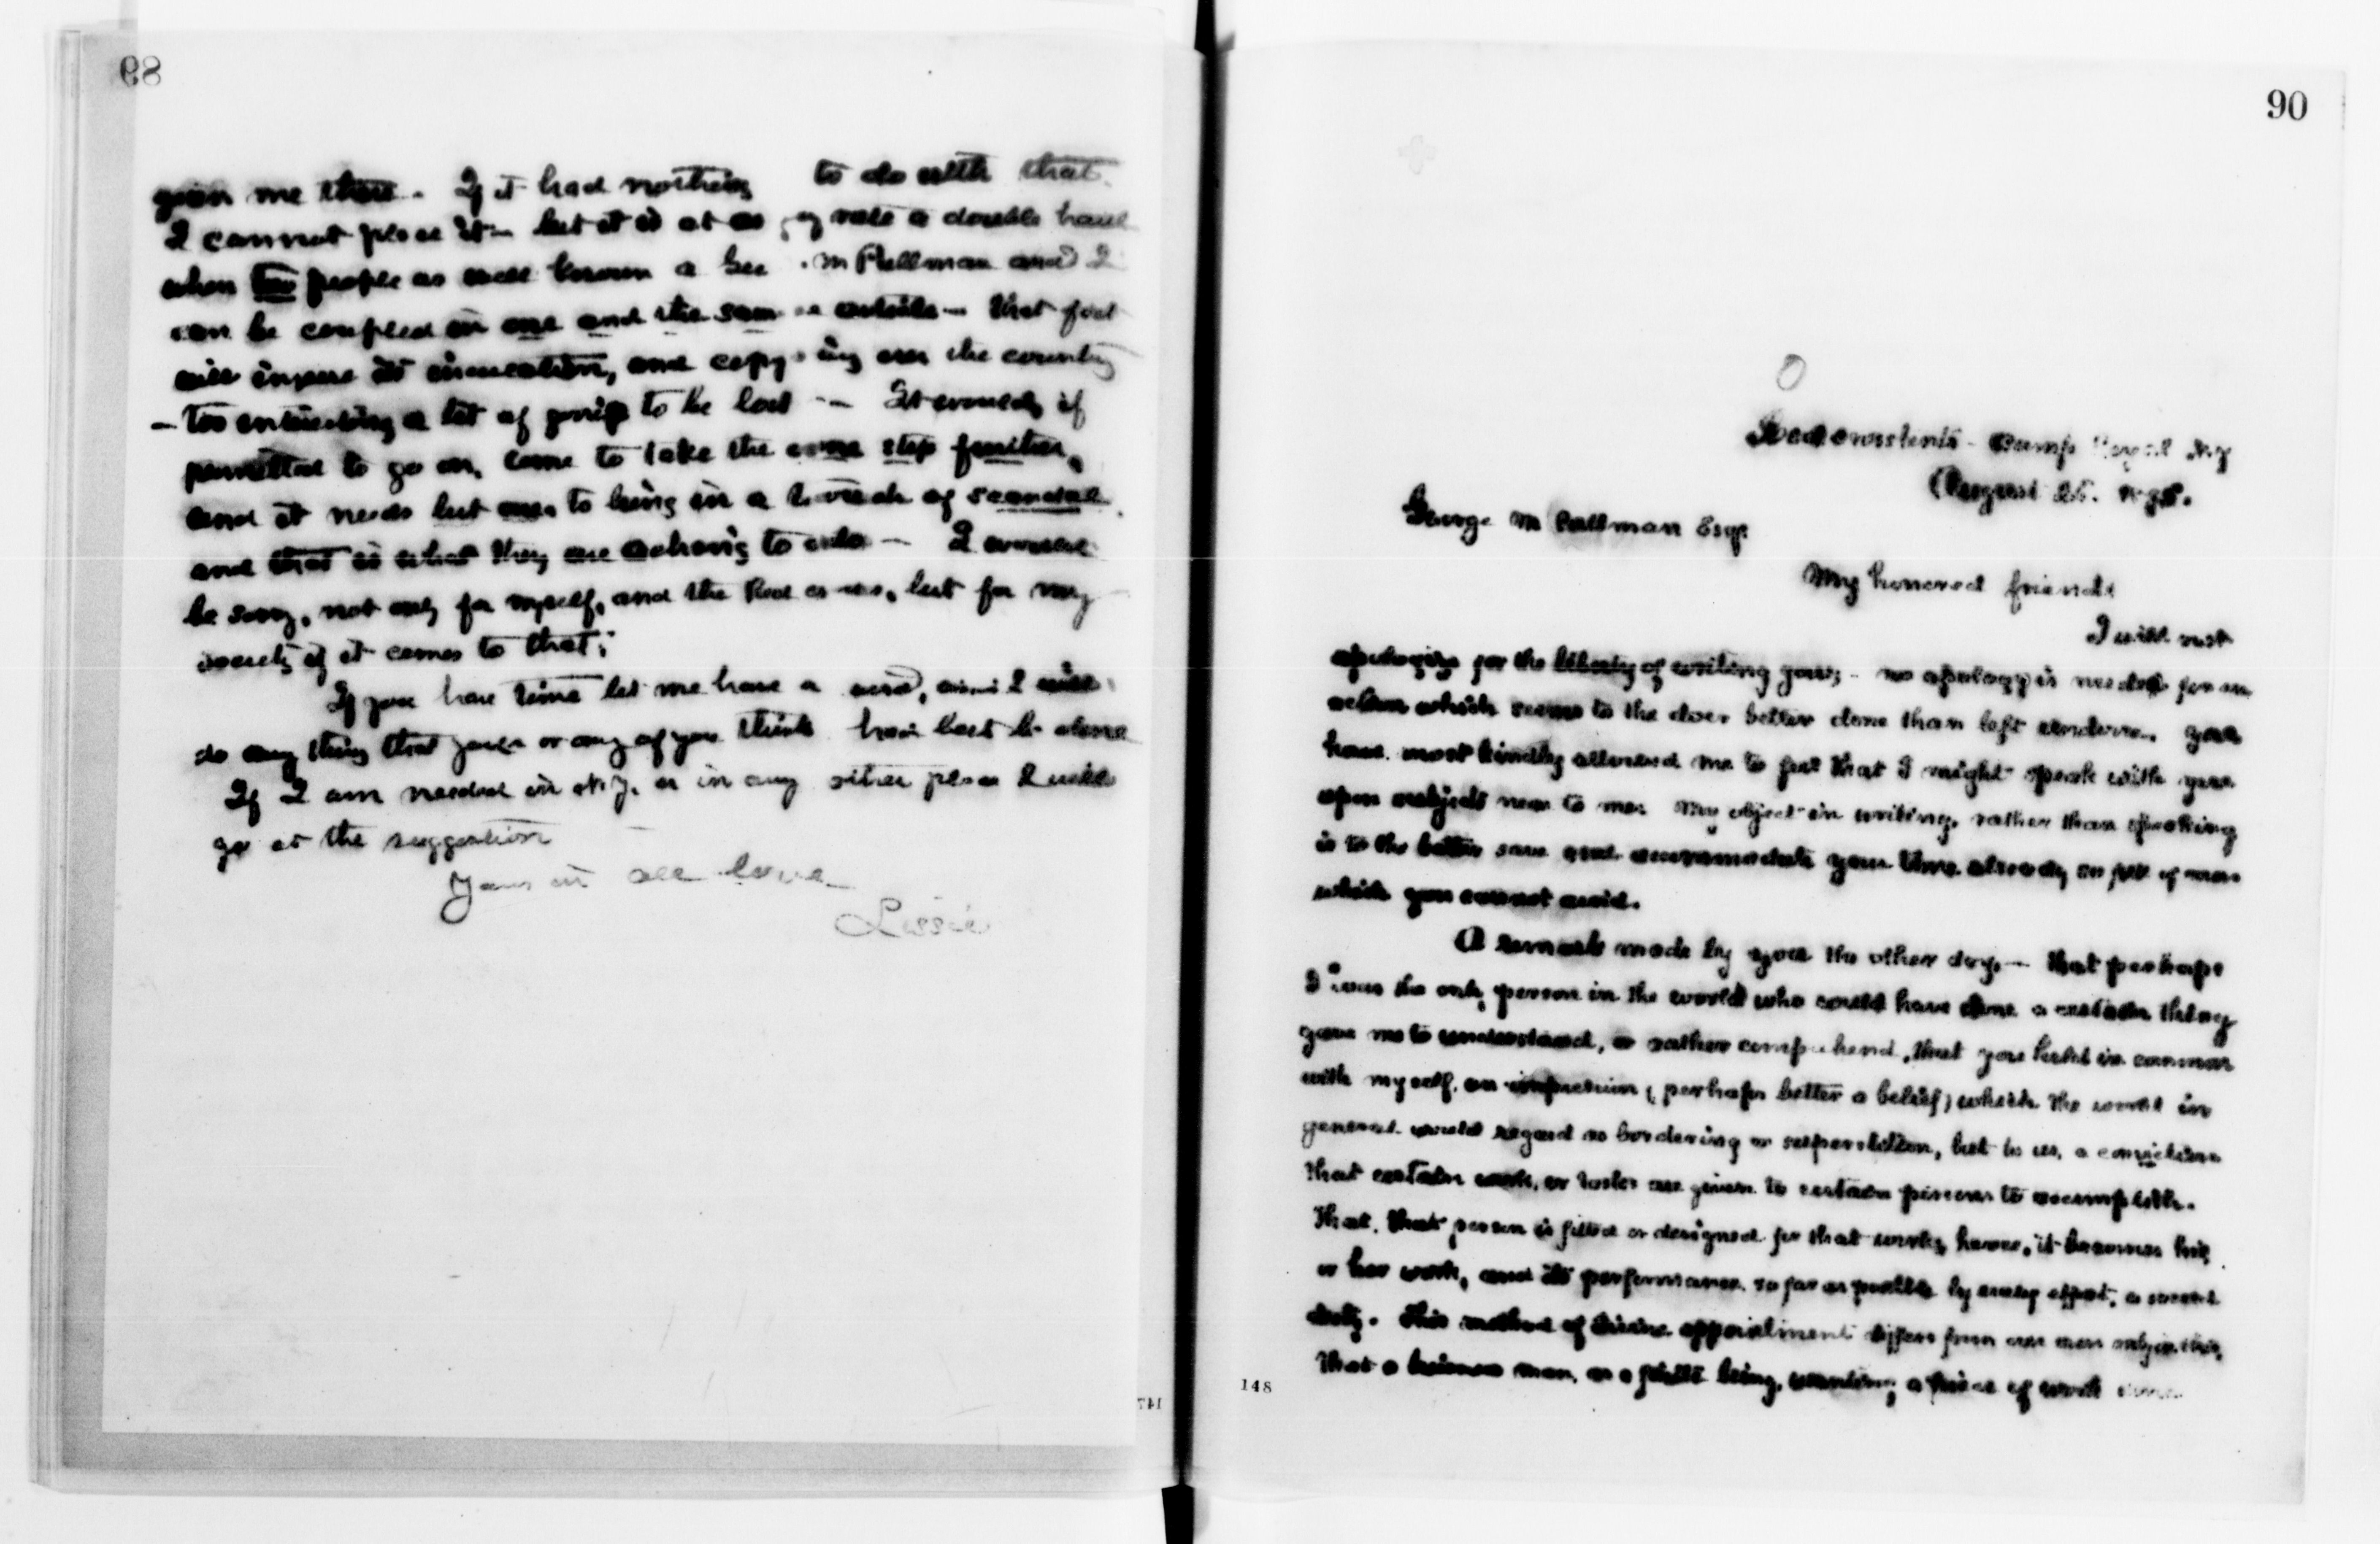 89
given me there. If it had nothing to do with that
I cannot place it – but it is at any rate a double haul
when two people as well known as Geo. M Pullman and I
can be coupled in one and the same article – that fact
will insure its circulation, and copying over the country
– too enticing a bit of gossip to be lost – It would, if
permitted to go on, come to take the one step further,
and it needs but one to bring in a breath of scandal
and that is what they are aching to do – I would
be sorry, not only for myself, and the Red Cross, but for my
society if it comes to that.
If you have time let me have a word, and I will
do any thing that you or any of you think had best be done
If I am needed in N.Y. or in any other place I will
go at the suggestion
Yours in all love
Lissie
147
90
Headquarters Camp
August 25.
George M Pullman Esqr
My honored friend:
I will not
apologize for the liberty of writing you; no apology is needed for an
action which seems to the doer better done than left undone. You
have most kindly allowed me to feel that I might speak with you
upon subjects near to me. My object in writing, rather than speaking
is to the better save and accommodate your time already so full of
which you cannot avoid.
A remark made by you the other day, – that perhaps
I was the only person in the world who could have done a certain thing
gave me to understand, or rather comprehend, that you held in common
with myself, an impression (perhaps better a belief) which the world in
general would regard as bordering on superstition, but to us, a conviction
that certain work, or tasks are given to certain persons to accomplish.
That, that person is fitted or designed for that work, hence, it becomes his
or her work, and its performance so far as possible by every effort, a sacred
duty. This method of Divine appointment differs from our own only in this,
that a business man, as a finite being, wanting a piece of work done
148